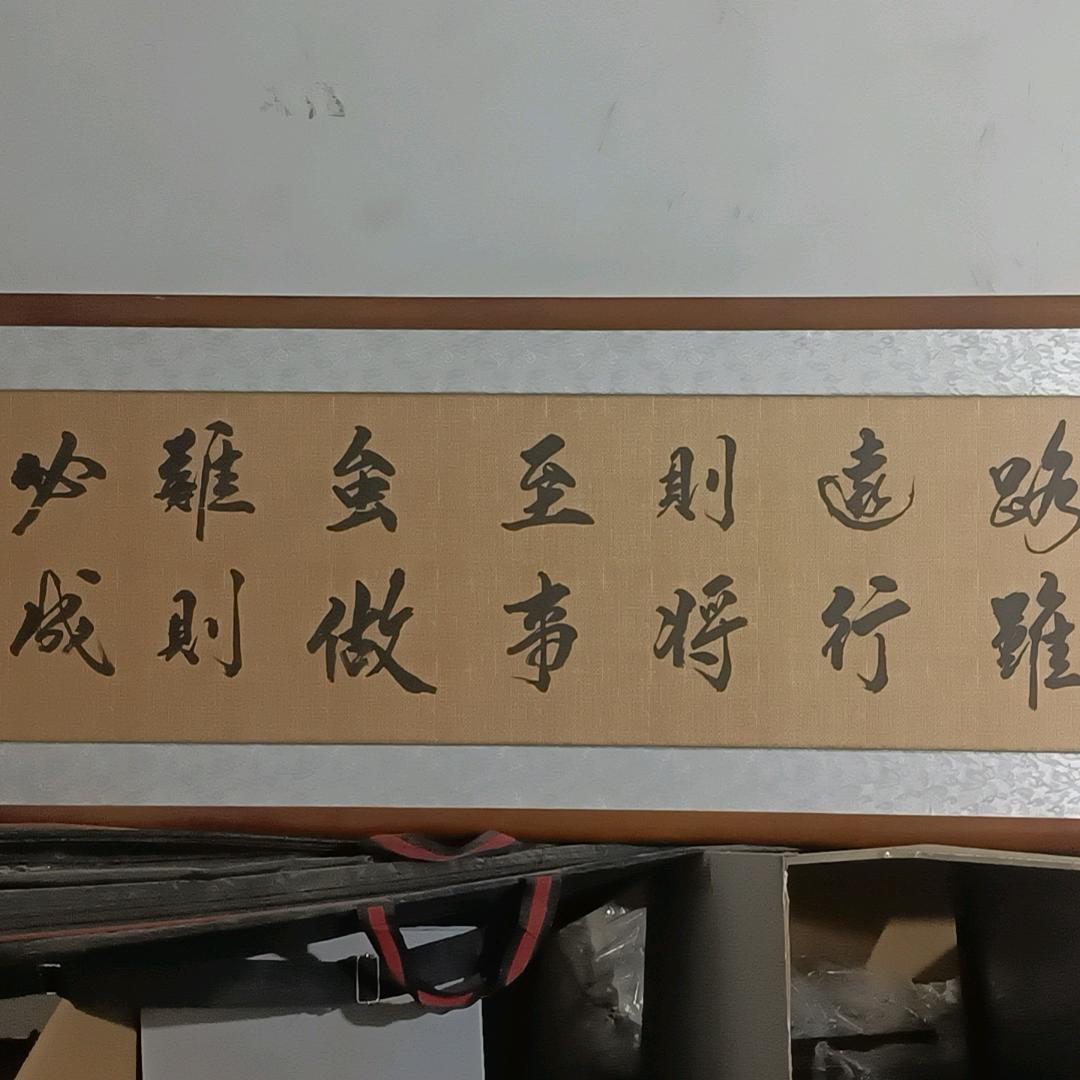 路雖
遠行
則将
至事
虽做
難則
必成